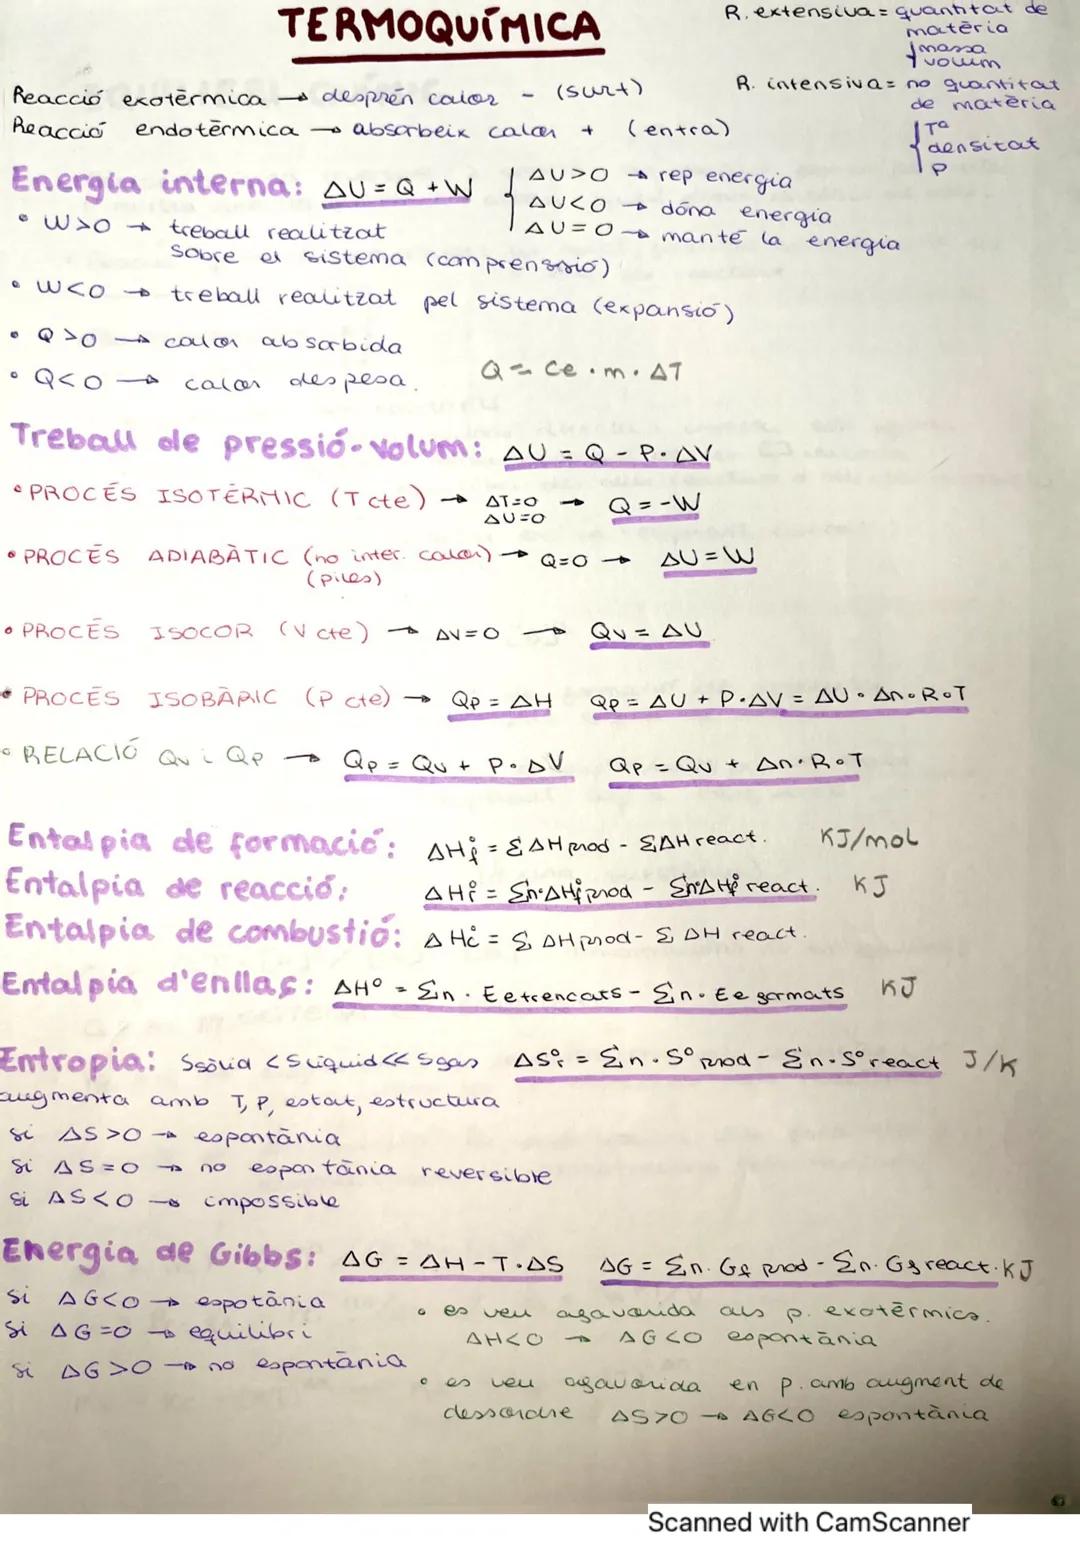 TERMOQUÍMICA
R. extensiva = quantitat de
matèria
massa
volum
Reacció exotèrmica → desprèn calor - (surt)
R. intensiva = no quantitat
de matèria
Reacció endotèrmica → absorbeix calor + (entra)
Tª
densitat
P
Energia interna: ΔU = Q + W
ΔU>0 → rep energia
ΔU<0 → dóna energia
ΔU=0 → manté la energia
• W>0 → treball realitzat
sobre el sistema (comprenssió)
• W<0 → treball realitzat pel sistema (expansió)
• Q>0 → calor absorbida
• Q<0 → calor despesa.
Q = Ce · m · ΔT
Treball de pressió-volum: ΔU = Q - P·ΔV
• PROCÉS ISOTÈRMIC (T cte) → ΔT=0 → Q = -W
ΔU=0
• PROCÉS ADIABÀTIC (no inter. calor) → Q=0 → ΔU = W
(piles)
• PROCÉS ISOCOR (V cte) → ΔV=0 → Qv = ΔU
• PROCÉS ISOBÀRIC (P cte) → Qp = ΔH Qp = ΔU + P·ΔV = ΔU · Δn·R·T
• RELACIÓ Qv i Qp → Qp = Qv + P·ΔV Qp = Qv + Δn·R·T
Entalpia de formació: ΔH°f = ΣΔHprod - ΣΔHreact. KJ/mol
Entalpia de reacció: ΔH°r = Σn·ΔH°f prod - Σn·ΔH°f react. KJ
Entalpia de combustió: ΔH°c = Σ ΔHprod - Σ ΔH react.
Entalpia d'enllaç: ΔH° = Σn · Ee trencats - Σn · Ee formats KJ
Entropia: Ssòlid < Slíquid << Sgas ΔS°r = Σn · S°prod - Σn · S°react J/K
augmenta amb T, P, estat, estructura
si ΔS>0 → espontània
si ΔS=0 → no espontània reversible
si ΔS<0 → impossible
Energia de Gibbs: ΔG = ΔH - T·ΔS ΔG = Σn · Gf prod - Σn · Gf react. KJ
si ΔG<0 → espotània
si ΔG=0 → equilibri
si ΔG>0 → no espontània
• es veu afavorida als p. exotèrmics.
ΔH<0 → ΔG<0 espontània
• es veu afavorida en p. amb augment de
dessordre ΔS>0 → ΔG<0 espontània
Scanned with CamScanner